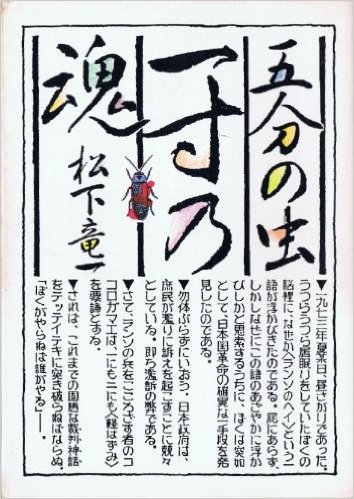 五分の虫
一寸乃
魂
松下竜一
▼一九七三年夏某日、昼さがりであった。
うつらうつら居眠りをしていたぼくの
脳裡に、なぜか〈ランソのヘイ〉という一
語が浮かびきたのである。屁にあらず。
しかしなぜにこの語のあざやかに浮か
びしかと思索するうちに、ぼくは突如
として、日本国革命の確実な一手段を発
見したのである。
▼勿体ぶらずにいおう。日本政府は、
庶民が濫りに訴えを起こすことに競々
としている。即ち濫訴の弊である。
▼さて、ランソの兵をこころざす者のコ
コロガマエは、一にも二にも〈軽はずみ〉
を要諦とする。
▼これは、これまでの固陋な裁判神話
をテッテイテキに突き破らねばならぬ。
「ぼくがやらねば誰がやる」――。